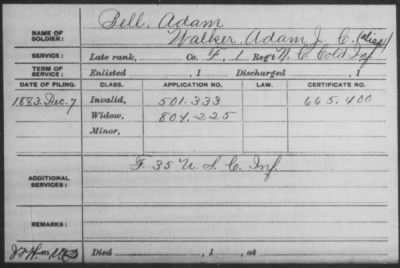 Pell, Adam
NAME OF SOLDIER: Walker, Adam J. C. (alias)
SERVICE: Late rank, Co. F, 1 Reg't N. C. Cold Inf
TERM OF SERVICE: Enlisted , 1 Discharged , 1
DATE OF FILING. CLASS. APPLICATION NO. LAW. CERTIFICATE NO.
1883. Dec. 7 Invalid, 501.333 665.400
Widow, 804.225
Minor,
F. 35 U. S. C. Inf.
ADDITIONAL SERVICES:
REMARKS:
Died , 1 , at